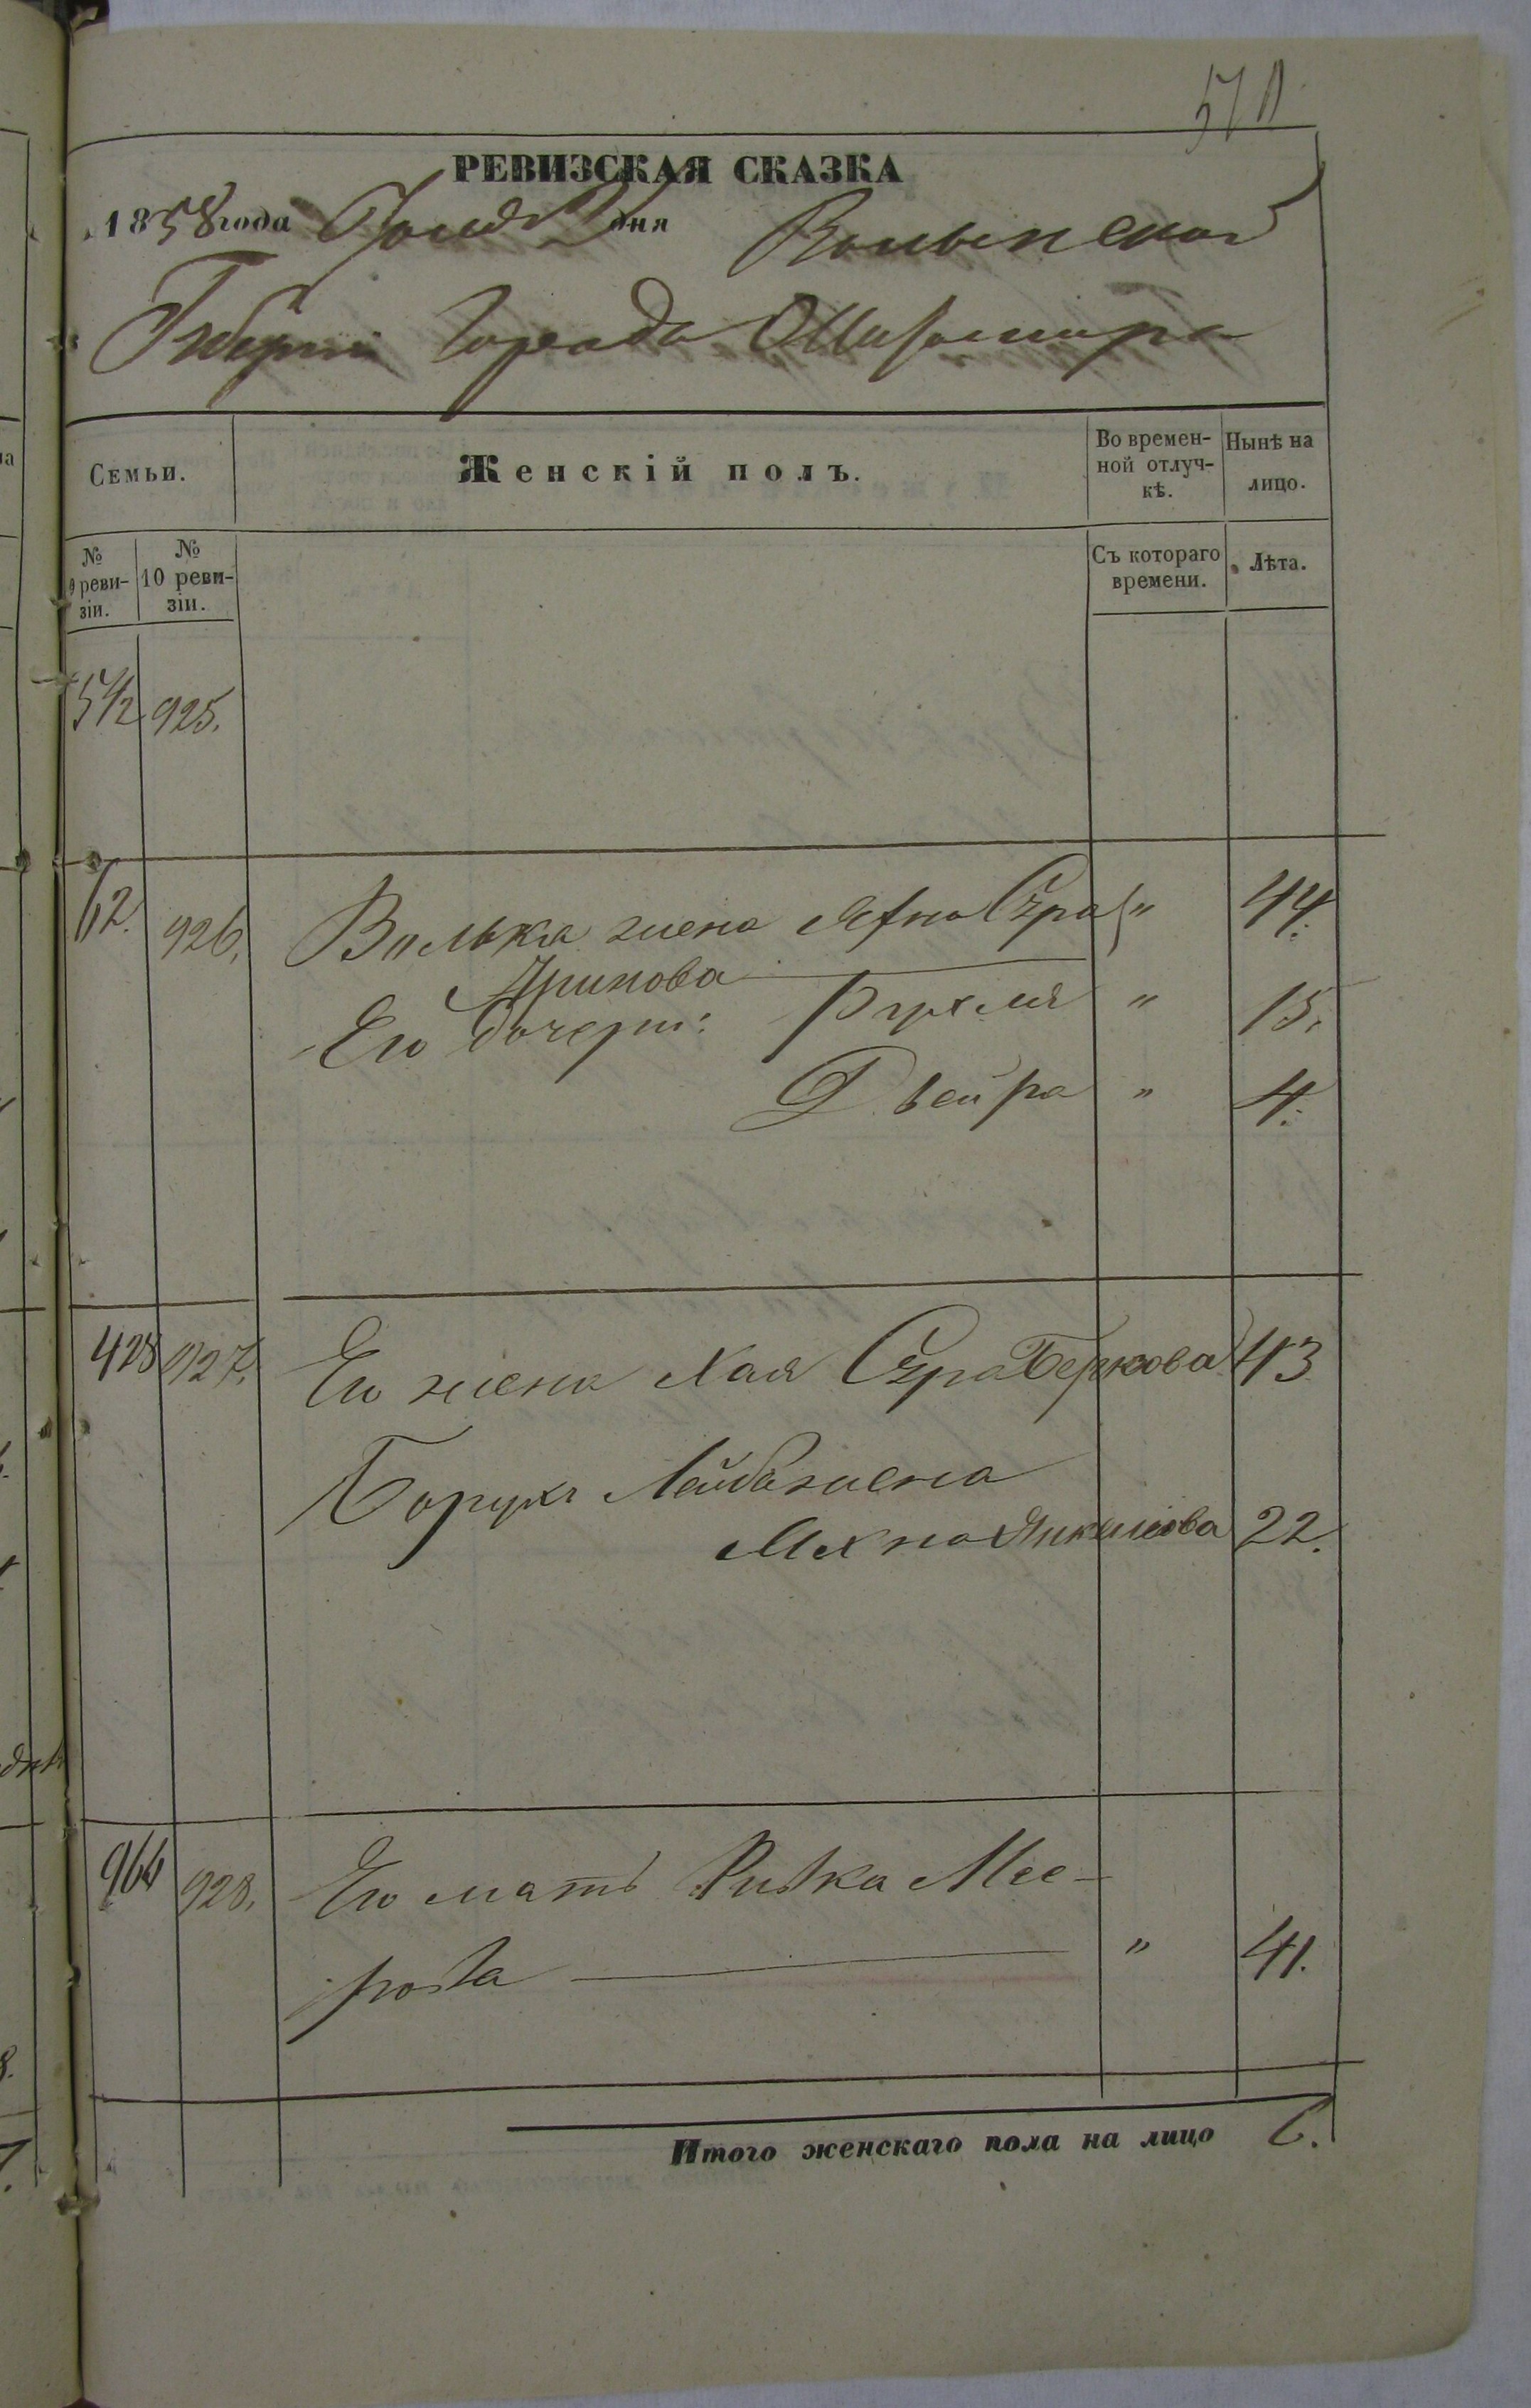 РЕВИЗСКАЯ СКАЗКА
1858 года Іюня дня Волынской
Губерніи Города Житомира
Семьи. Женскій полъ. Во времен-ной отлуч-кѣ. Нынѣ на лицо.
№ 9 реви-зіи. № 10 реви-зіи. Съ котораго времени. Лѣта.
925.
62. 926. Волька жена Сура " 44.
Его дочери: Рухля " 15.
Двейра " 4.
428 927. Его жена Хая Сура Беркова 43
Борухъ Лейба жена
Махна Янкелева 22.
964 928. Его мать Ривка Мее-
рова " 41.
Итого женскаго пола на лицо 6.